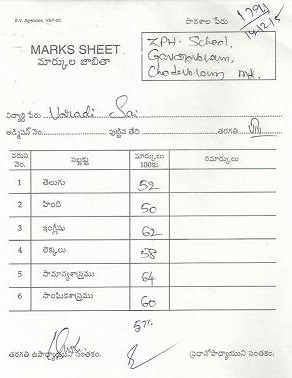 S.V. Agencies, VSP-20.
పాఠశాల పేరు
14/12/15
MARKS SHEET
మార్కుల జాబితా
ZPH. School,
Gavaravaram,
Chodavaram
విద్యార్థి పేరు Varadi Sai
అడ్మిషన్ నెం. పుట్టిన తేది తరగతి VIII
వరుస నెం. సబ్జెక్టు మార్కులు 100కు రిమార్కులు
1 తెలుగు 52
2 హింది 50
3 ఇంగ్లీషు 62
4 లెక్కలు 58
5 సామాన్యశాస్త్రము 64
6 సాంఘికశాస్త్రము 60
57%
తరగతి ఉపాధ్యాయుని సంతకం. ప్రధానోపాధ్యాయుని సంతకం.